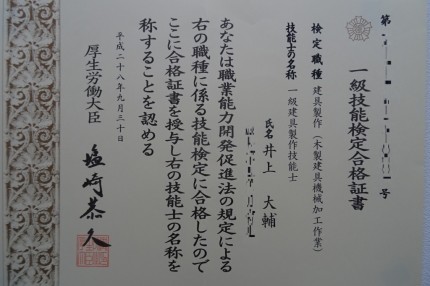 第 号
一級技能検定合格証書
検定職種 建具製作（木製建具機械加工作業）
技能士の名称 一級建具製作技能士
氏名 井上 大輔
あなたは職業能力開発促進法の規定による
右の職種に係る技能検定に合格したので
ここに合格証書を授与し右の技能士の名称を
称することを認める
平成二十八年九月三十日
厚生労働大臣 塩崎恭久